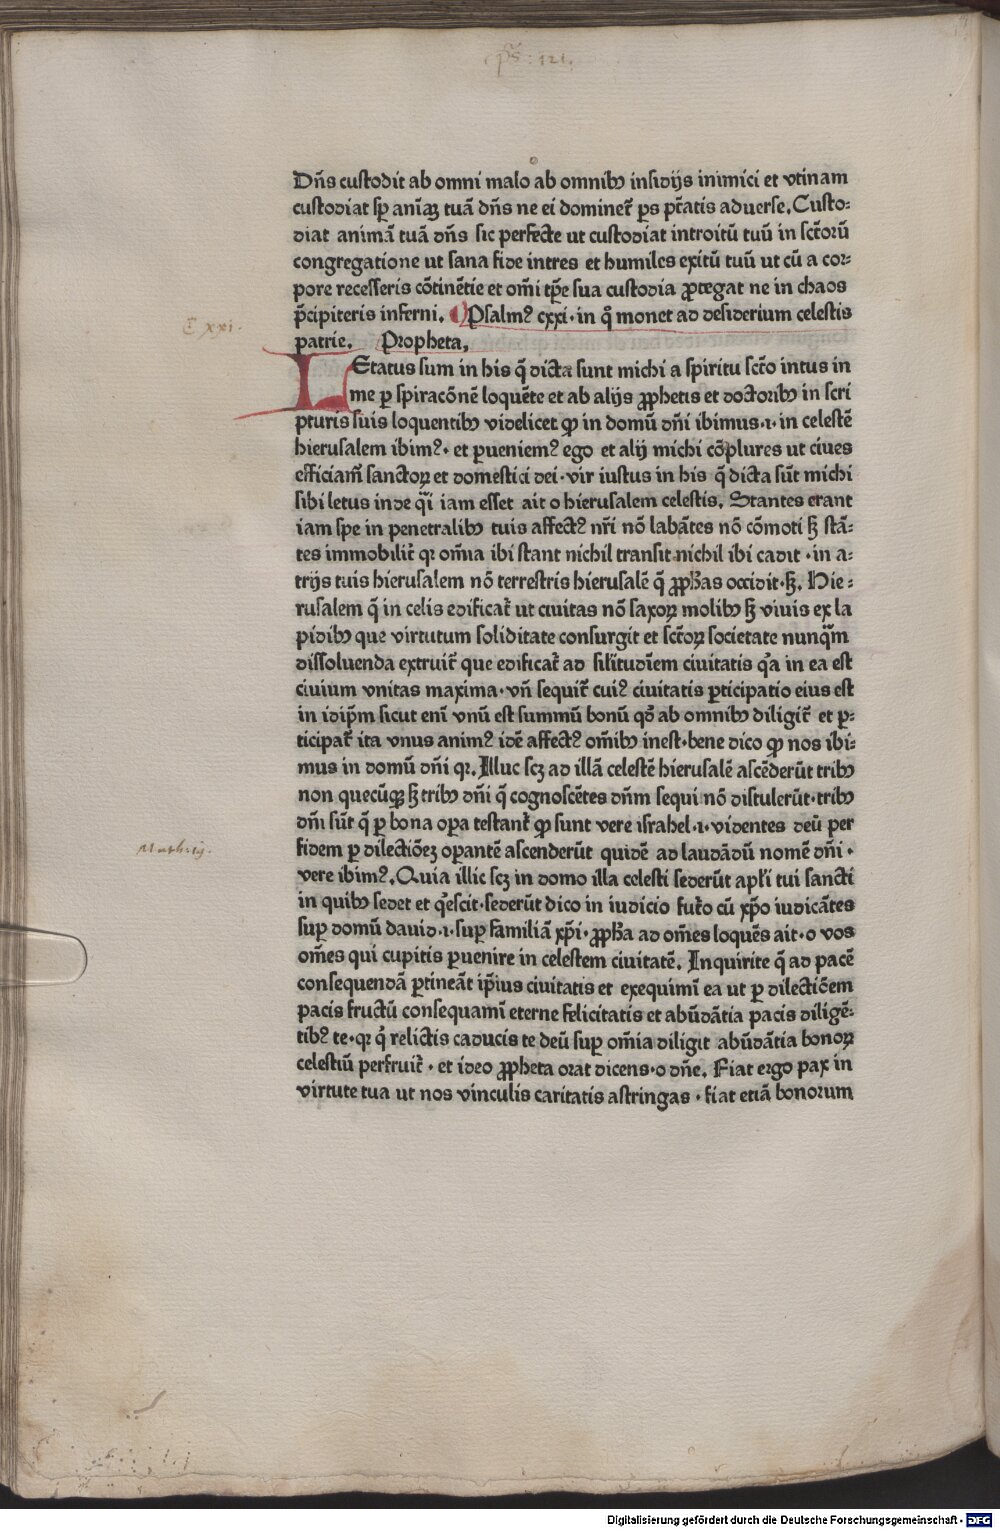 ps: 121.
Dn̄s custodit ab omni malo ab omnibꝫ insidijs inimici et vtinam
custodiat sp̱ anīaꝫ tuā dn̄s ne ei dominet᷑ ps pt̄atis aduerse. Custo⸗
diat animā tuā dn̄s sic perfecte ut custodiat introitū tuū in sct̄orū
congregatione ut sana fide intres et humiles exitū tuū ut cū a cor⸗
pore recesseris cōtinētie et om̄i tp̄e sua custodia ꝓtegat ne in chaos
p̄cipiteris inferni. Psalmꝰ cxxi·in qͦ monet ad desiderium celestis
C xxi.
patrie. Propheta.
LEtatus sum in his q̄ dicta sunt michi a spiritu sct̄o intus in
me ꝑ spiracōnē loquēte et ab alijs ꝓphetis et doctoribꝫ in scri
pturis suis loquentibꝫ videlicet ꝙ in domū dn̄i ibimus·i·in celestē
hierusalem ibimꝰ·et ꝑueniemꝰ ego et alij michi cōplures ut ciues
efficiam᷑ sanctoꝝ et domestici dei·vir iustus in his q̄ dicta sūt michi
sibi letus inde qͣi iam esset ait o hierusalem celestis. Stantes erant
iam spe in penetralibꝫ tuis affectꝰ nr̄i nō labātes nō cōmoti sꝫ stā⸗
tes immobilit᷑ qꝛ om̄ia ibi stant nichil transit nichil ibi cadit·in a⸗
trijs tuis hierusalem nō terrestris hierusalē q̄ ꝓph̄as occidit·sꝫ. Hie⸗
rusalem q̄ in celis edificat᷑ ut ciuitas nō saxoꝝ molibꝫ sꝫ viuis ex la
pidibꝫ que virtutum soliditate consurgit et sct̄oꝝ societate nunqͣm
dissoluenda extruit᷑ que edificat᷑ ad silītudīem ciuitatis qͣa in ea est
ciuium vnitas maxima·vn̄ sequit᷑ cuiꝰ ciuitatis ꝑticipatio eius est
in idip̄m sicut enī vnū est summū bonū qd̄ ab omnibꝫ diligit᷑ et ꝑ⸗
ticipat᷑ ita vnus animꝰ idē affectꝰ om̄ibꝫ inest·bene dico ꝙ nos ibi⸗
mus in domū dn̄i qꝛ. Illuc scꝫ ad illā celestē hierusalē ascēderūt tribꝫ
non quecūqꝫ sꝫ tribꝫ dn̄i q̄ cognoscētes dn̄m sequi nō distulerūt·tribꝫ
dn̄i sūt q̄ ꝑ bona oꝑa testant᷑ ꝙ sunt vere israhel·i·videntes deū per
fidem ꝑ dilectiōeꝫ oꝑantē ascenderūt quidē ad laudādū nomē dn̄i·
vere ibimꝰ. Quia illic scꝫ in domo illa celesti sederūt apl̄i tui sancti
in quibꝫ sedet et qͥescit·sederūt dico in iudicio futo᷑ cū xp̄o iudicātes
suꝑ domū dauid·i·suꝑ familiā xp̄i·ꝓph̄a ad om̄es loquēs ait·o vos
om̄es qui cupitis ꝑuenire in celestem ciuitatē. Inquirite q̄ ad pacē
consequendā ꝑtineāt ip̄ius ciuitatis et exequimī ea ut ꝑ dilectiōem
pacis fructū consequamī eterne felicitatis et abūdātia pacis diligē⸗
tibꝰ te·qꝛ qͥ relictis caducis te deū suꝑ om̄ia diligit abūdātia bonoꝝ
celestiū perfruit᷑·et ideo ꝓpheta orat dicens·o dn̄e. Fiat ergo pax in
virtute tua ut nos vinculis caritatis astringas·fiat etiā bonorum
Digitalisierung gefördert durch die Deutsche Forschungsgemeinschaft - DFG